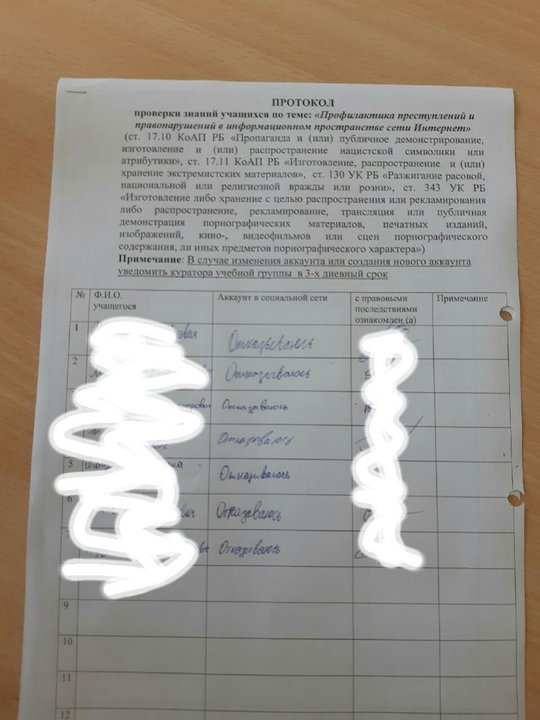 ПРОТОКОЛ
проверки знаний учащихся по теме: «Профилактика преступлений и
правонарушений в информационном пространстве сети Интернет»
(ст. 17.10 КоАП РБ «Пропаганда и (или) публичное демонстрирование,
изготовление и (или) распространение нацистской символики или
атрибутики», ст. 17.11 КоАП РБ «Изготовление, распространение и (или)
хранение экстремистских материалов», ст. 130 УК РБ «Разжигание расовой,
национальной или религиозной вражды или розни», ст. 343 УК РБ
«Изготовление либо хранение с целью распространения или рекламирования
либо распространение, рекламирование, трансляция или публичная
демонстрация порнографических материалов, печатных изданий,
изображений, кино-, видеофильмов или сцен порнографического
содержания, ли иных предметов порнографического характера»)
Примечание: В случае изменения аккаунта или создания нового аккаунта
уведомить куратора учебной группы в 3-х дневный срок
№ Ф.И.О. учащегося Аккаунт в социальной сети с правовыми последствиями ознакомлен (а) Примечание
1 Отказываюсь
2 Отказываюсь
Отказываюсь
Отказываюсь
5 Отказываюсь
6 Отказеваюсь
Отказываюсь
9
10
11
12